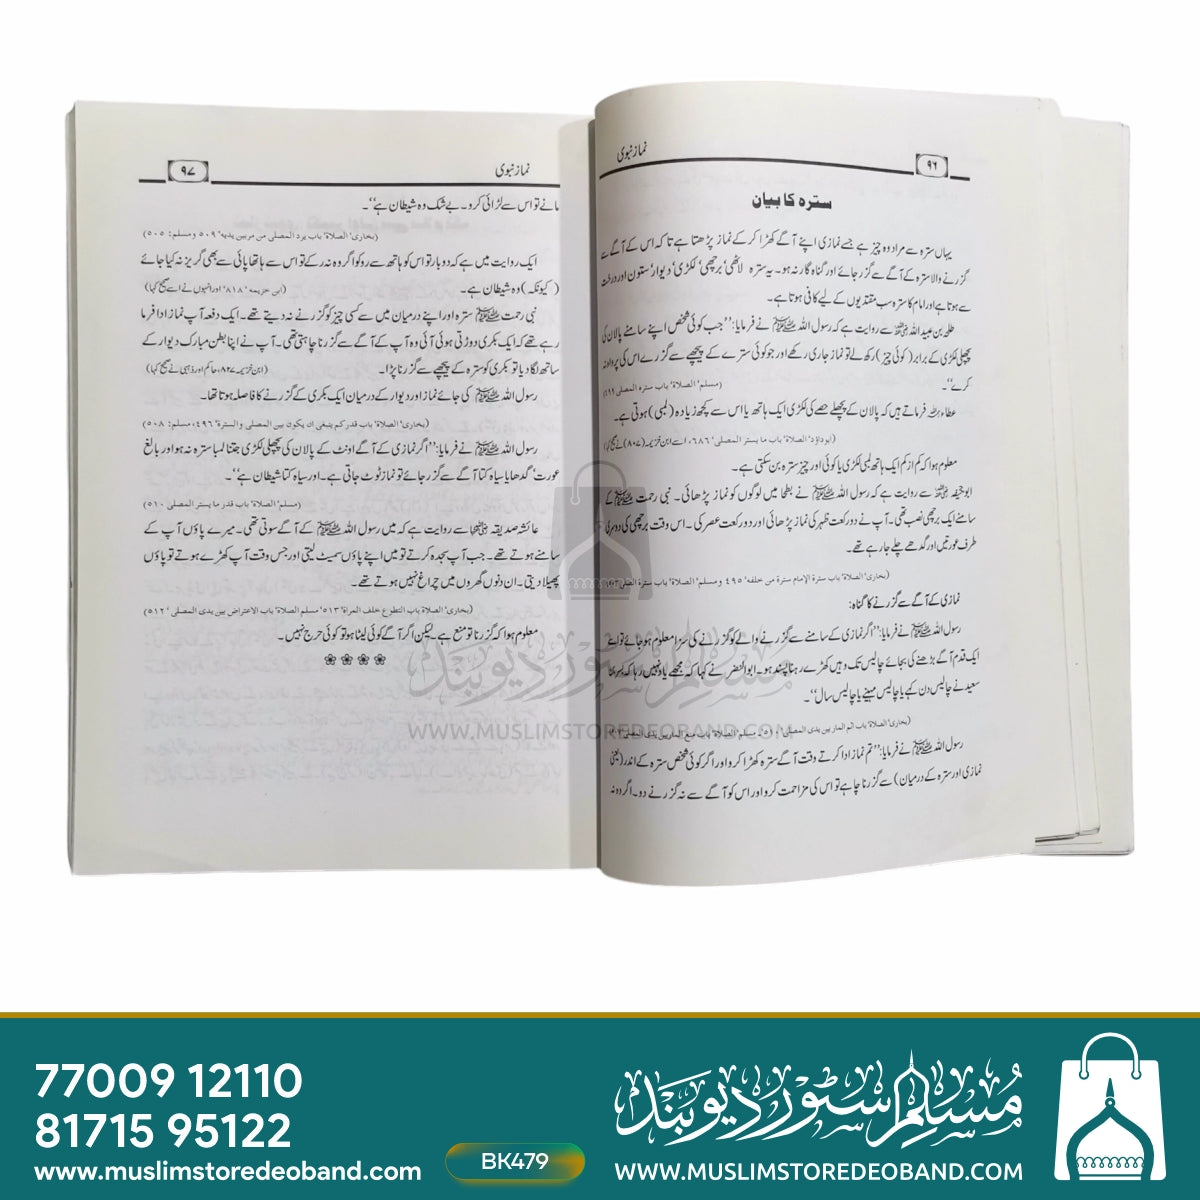 نماز نبوی
۹۶
سترہ کا بیان
یہاں سترہ سے مراد وہ چیز ہے جسے نمازی اپنے آگے کھڑا کر کے نماز پڑھتا ہے تا کہ اس کے آگے سے
گزرنے والا سترہ کے آگے سے گزر جائے اور گناہ گار نہ ہو۔ یہ سترہ لاٹھی' برچھی' لکڑی' دیوار' ستون اور درخت
سے ہوتا ہے اور امام کا سترہ سب مقتدیوں کے لیے کافی ہوتا ہے۔
طلحہ بن عبید اللہ رضی اللہ عنہ سے روایت ہے کہ رسول اللہ ﷺ نے فرمایا: ''جب کوئی شخص اپنے سامنے پالان کی
پچھلی لکڑی کے برابر (کوئی چیز) رکھ لے تو نماز جاری رکھے اور جو کوئی سترے کے پیچھے سے گزرے اس کی پرواہ نہ
کرے''۔
(مسلم' الصلاۃ' باب سترہ المصلی ۴۹۹)
عطاء رحمہ اللہ فرماتے ہیں کہ پالان کے پچھلے حصے کی لکڑی ایک ہاتھ یا اس سے کچھ زیادہ (لمبی) ہوتی ہے۔
(ابوداؤد' الصلاۃ' باب ما یستر المصلی' ۶۸۶' اسے ابن خزیمہ (۸۰۷) نے صحیح کہا)
معلوم ہوا کہ کم از کم ایک ہاتھ لمبی لکڑی یا کوئی اور چیز سترہ بن سکتی ہے۔
ابو جحیفہ رضی اللہ عنہ سے روایت ہے کہ رسول اللہ ﷺ نے بطحا میں لوگوں کو نماز پڑھائی۔ نبی رحمت ﷺ کے
سامنے ایک برچھی نصب تھی۔ آپ نے دو رکعت ظہر کی نماز پڑھائی اور دو رکعت عصر کی۔ اس وقت برچھی کی دوسری
طرف عورتیں اور گدھے چلے جا رہے تھے۔
(بخاری' الصلاۃ' باب سترۃ الإمام سترۃ من خلفہ' ۴۹۵ ومسلم' الصلاۃ' باب سترۃ المصلی
نمازی کے آگے سے گزرنے کا گناہ:
رسول اللہ ﷺ نے فرمایا: ''اگر نمازی کے سامنے سے گزرنے والے کو گزرنے کی سزا معلوم ہو جائے تو اسے
ایک قدم آگے بڑھنے کی بجائے چالیس تک وہیں کھڑے رہنا پسند ہو۔ ابوالنضر نے کہا کہ مجھے یاد نہیں رہا کہ بسر بن
سعید نے چالیس دن کہے یا چالیس مہینے یا چالیس سال''۔
(بخاری' الصلاۃ' باب اثم المار بین یدی المصلی' ۵۱۰' مسلم' الصلاۃ' باب منع المار بین یدی المصلی
رسول اللہ ﷺ نے فرمایا: ''تم نماز ادا کرتے وقت آگے سترہ کھڑا کرو اور اگر کوئی شخص سترہ کے اندر (یعنی
نمازی اور سترہ کے درمیان) سے گزرنا چاہے تو اس کی مزاحمت کرو اور اس کو آگے سے نہ گزرنے دو۔ اگر وہ نہ
نماز نبوی
۹۷
مانے تو اس سے لڑائی کرو۔ بے شک وہ شیطان ہے''۔
(بخاری' الصلاۃ' باب یرد المصلی من مر بین یدیہ' ۵۰۹ ومسلم: ۵۰۵)
ایک روایت میں ہے کہ دو بار تو اس کو ہاتھ سے روکو اگر وہ نہ رکے تو اس سے ہاتھا پائی سے بھی گریز نہ کیا جائے
(کیونکہ) وہ شیطان ہے۔
(ابن خزیمہ' ۸۱۸' اور انہوں نے اسے صحیح کہا)
نبی رحمت ﷺ سترہ اور اپنے درمیان میں سے کسی چیز کو گزرنے نہ دیتے تھے۔ ایک دفعہ آپ نماز ادا فرما
رہے تھے کہ ایک بکری دوڑتی ہوئی آئی وہ آپ کے آگے سے گزرنا چاہتی تھی۔ آپ نے اپنا بطن مبارک دیوار کے
ساتھ لگا دیا تو بکری کو سترہ کے پیچھے سے گزرنا پڑا۔
(ابن خزیمہ ۸۲۷، حاکم اور ذہبی نے صحیح کہا)
رسول اللہ ﷺ کی جائے نماز اور دیوار کے درمیان ایک بکری کے گزرنے کا فاصلہ ہوتا تھا۔
(بخاری' الصلاۃ' باب قدر کم ینبغی ان یکون بین المصلی والسترۃ' ۴۹۶، مسلم: ۵۰۸)
رسول اللہ ﷺ نے فرمایا: ''اگر نمازی کے آگے اونٹ کے پالان کی پچھلی لکڑی جتنا لمبا سترہ نہ ہو اور بالغ
عورت' گدھا یا سیاہ کتا آگے سے گزر جائے تو نماز ٹوٹ جاتی ہے۔ اور سیاہ کتا شیطان ہے''۔
(مسلم' الصلاۃ' باب قدر ما یستر المصلی ۵۱۰)
عائشہ صدیقہ رضی اللہ عنہا سے روایت ہے کہ میں رسول اللہ ﷺ کے آگے سوتی تھی۔ میرے پاؤں آپ کے
سامنے ہوتے تھے۔ جب آپ سجدہ کرتے تو میں اپنے پاؤں سمیٹ لیتی اور جس وقت آپ کھڑے ہوتے تو پاؤں
پھیلا دیتی۔ ان دنوں گھروں میں چراغ نہیں ہوتے تھے۔
(بخاری' الصلاۃ باب التطوع خلف المراۃ' ۵۱۳' مسلم الصلاۃ' باب الاعتراض بین یدی المصلی' ۵۱۲)
معلوم ہوا کہ گزرنا تو منع ہے لیکن اگر آگے کوئی لیٹا ہو تو کوئی حرج نہیں۔
مسلم سٹور دیوبند
WWW.MUSLIMSTOREDEOBAND.COM
77009 12110
81715 95122
www.muslimstoredeoband.com
BK479
مسلم سٹور دیوبند
WWW.MUSLIMSTOREDEOBAND.COM